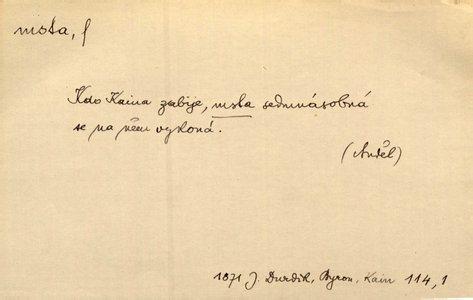 msta, f
Kdo Kaina zabije, msta sedmnásobná
se na něm vykoná.
(Anděl)
1871 J. Durdík, Byron, Kain 114,1